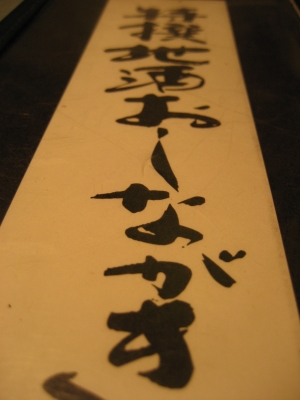 特撰地酒おしながき